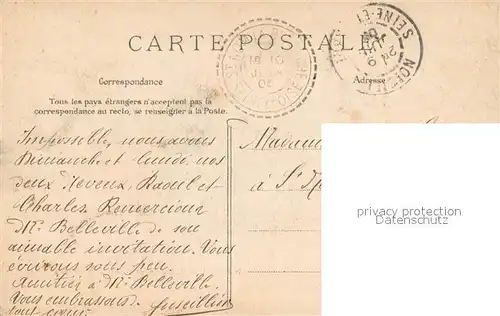 CARTE POSTALE
Correspondance
Adresse
Tous les pays étrangers n'acceptent pas la
correspondance au recto, se renseigner à la Poste.
Impossible, nous avons
Dimanche et lundi nos
deux Neveux, Raoul et
Charles. Remercions
Mr. Belleville de son
aimable invitation. Vous
écrirons sous peu.
Amitiés à Mr. Belleville.
Vous embrassons de
tout cœur
Madame
à St
SEINE-ET
privacy protection
Datenschutz